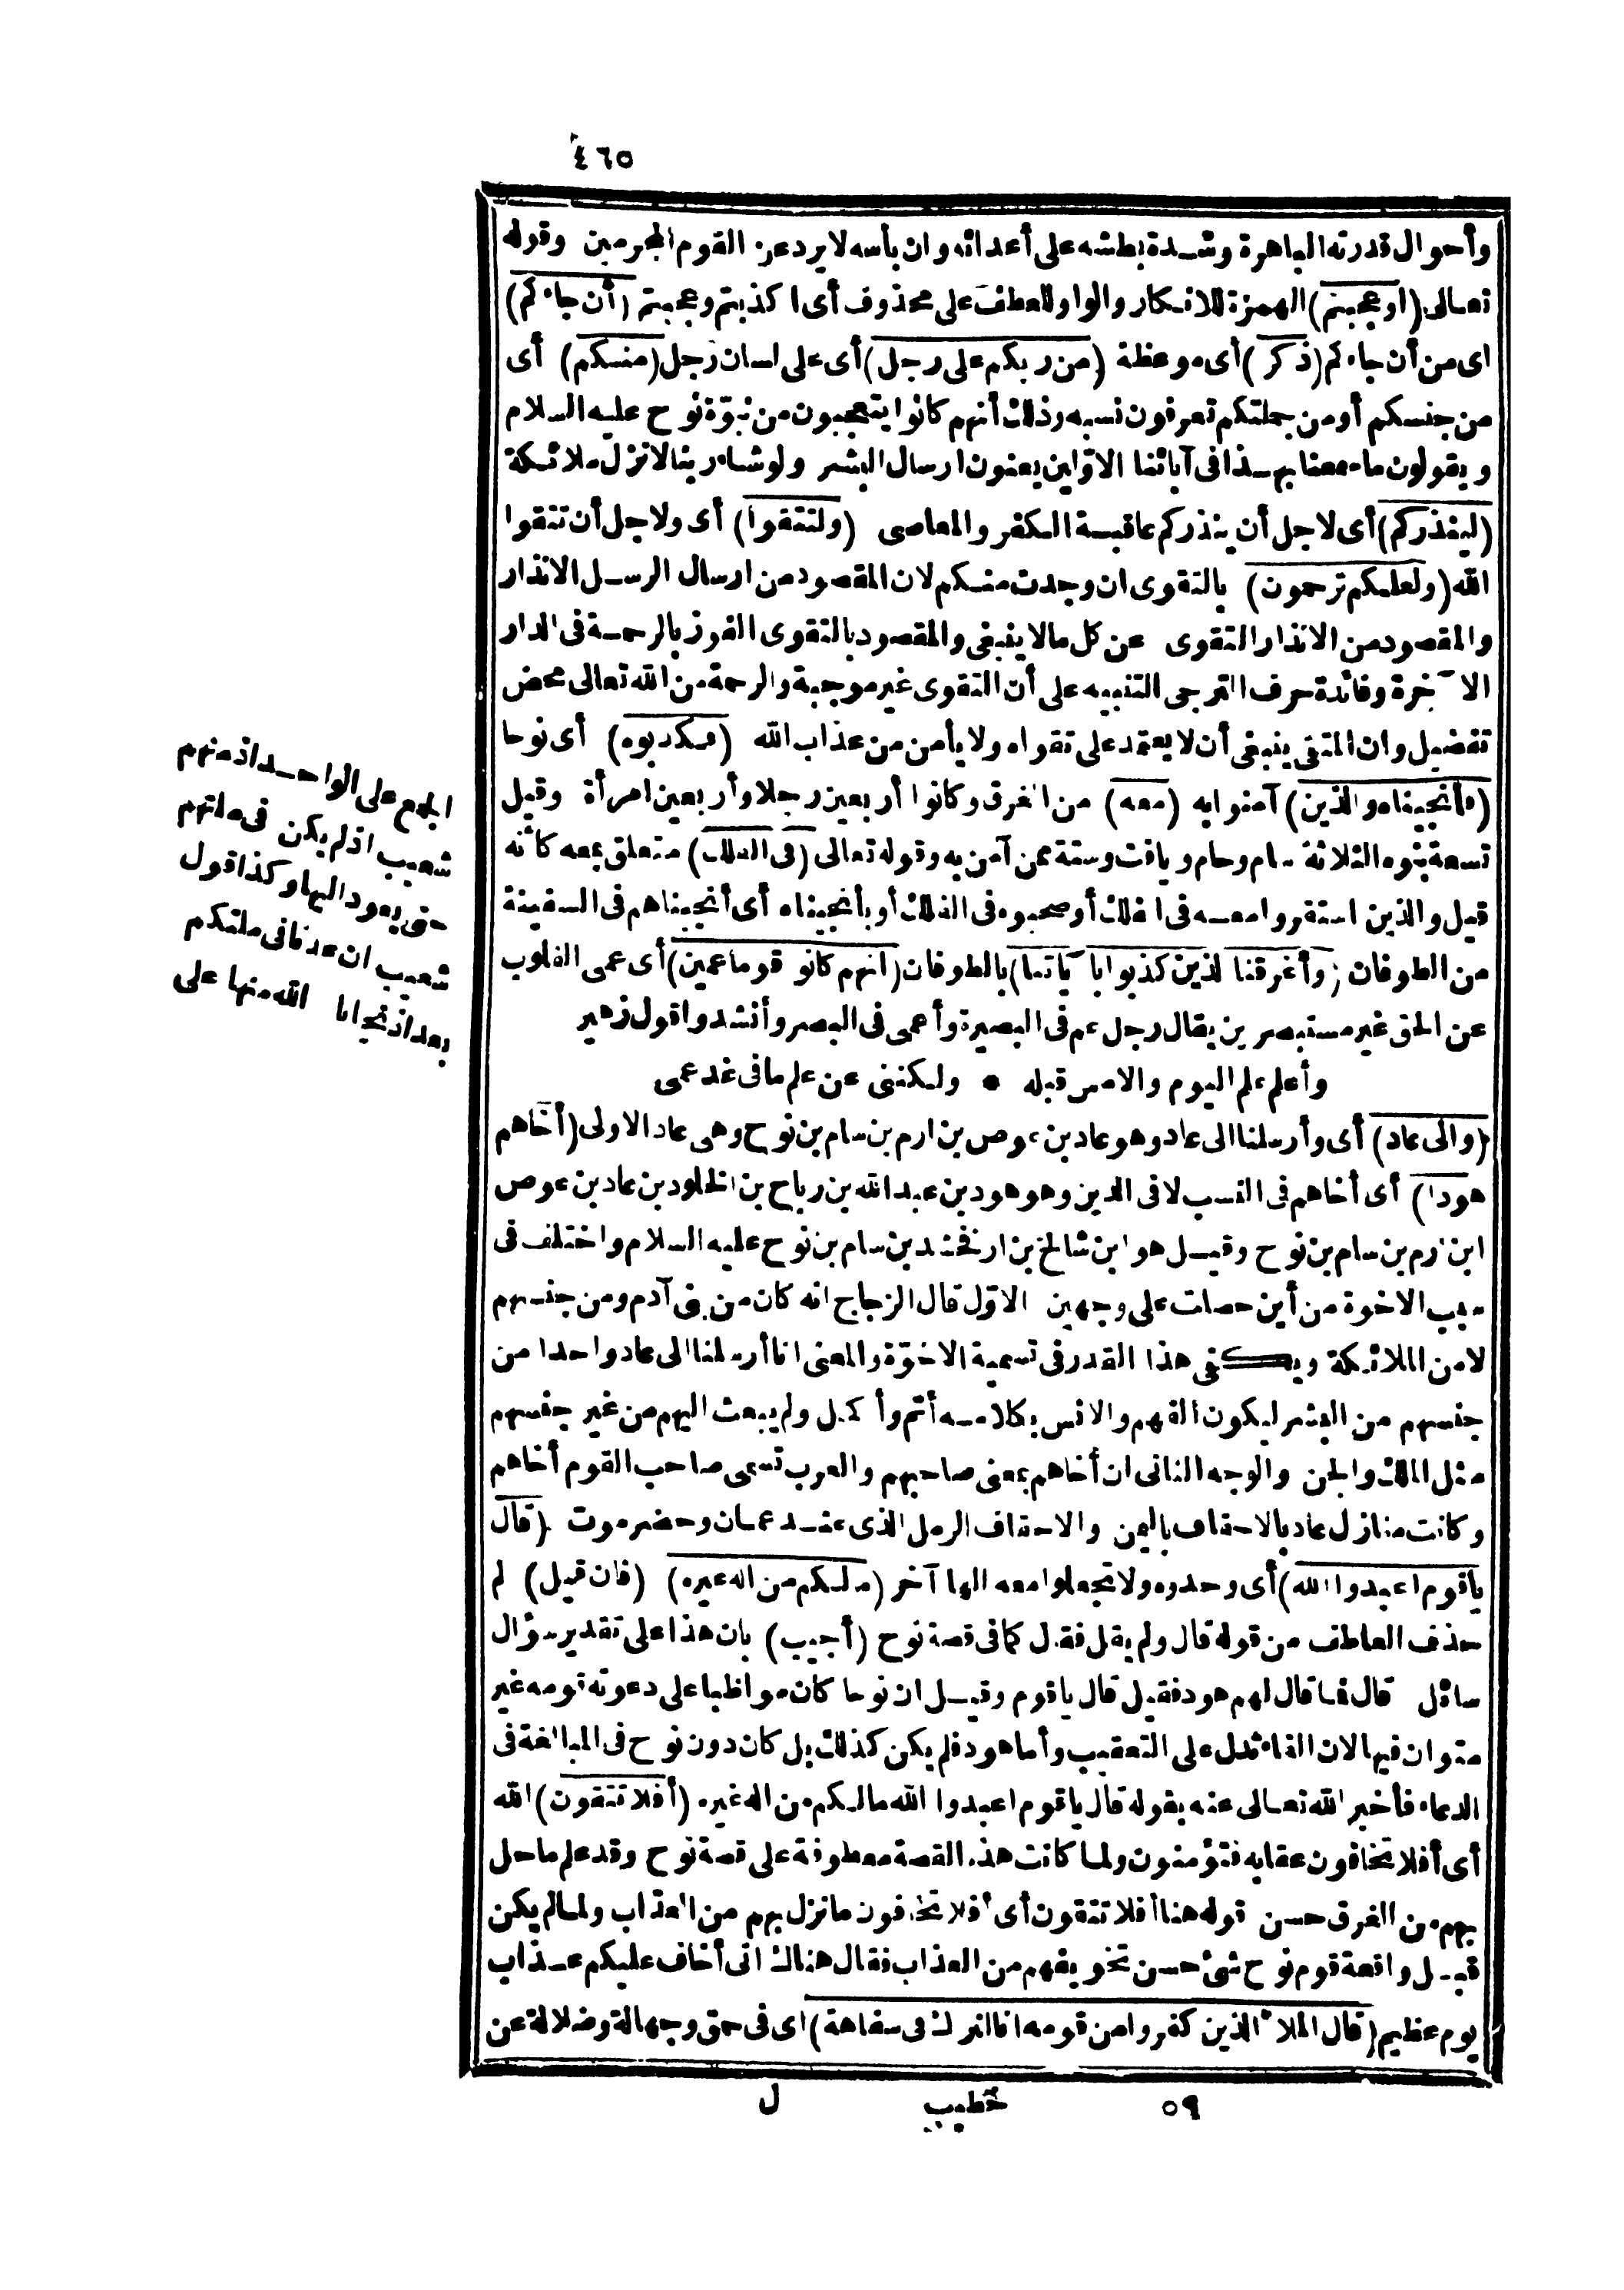 ٤٦٥
وأحوال قدرته الباهرة وشدة بطشه على أعدائه وان بأسه لا يرد عن القوم المجرمين وقوله
تعالى (أوعجبتم) الهمزة للانكار والواو للعطف على محذوف أى اكذبتم وعجبتم (أن جاءكم)
اى من أن جاءكم (ذكر) أى موعظة (من ربكم على رجل) أى على لسان رجل (منكم) أى
من جنسكم أو من جملتكم تعرفون نسبه وذلك أنهم كانوا يتعجبون من نبوّة نوح عليه السلام
ويقولون ما سمعنا بهذا فى آبائنا الاوّلين يعنون ارسال البشر ولو شاء ربنا لانزل ملائكة
(لينذركم) أى لاجل أن ينذركم عاقبة الكفر والمعاصى (ولتتقوا) أى ولاجل أن تتقوا
الله (ولعلكم ترحمون) بالتقوى ان وجدت منكم لان المقصود من ارسال الرسل الانذار
والمقصود من الانذار التقوى عن كل ما لا ينبغى والمقصود بالتقوى الفوز بالرحمة فى الدار
الآخرة وفائدة حرف الترجى التنبيه على أن التقوى غير موجبة والرحمة من الله تعالى محض
تفضيل وان المتقى ينبغى أن لا يعتمد على تقواه ولا يأمن من عذاب الله (فكذبوه) أى نوحا
(فأنجيناه والذين) آمنوا به (معه) من الغرق وكانوا أربعين رجلا وأربعين امرأة وقيل
تسعة بنوه الثلاثة سام وحام ويافث وستة ممن آمن به وقوله تعالى (فى الفلك) متعلق بمعه كأنه
قيل والذين استقروا معه فى الفلك أو صحبوه فى الفلك أو بأنجيناه أى أنجيناهم فى السفينة
من الطوفان (وأغرقنا الذين كذبوا بآياتنا) بالطوفان (انهم كانوا قوما عمين) أى عمى القلوب
عن الحق غير مستبصرين يقال رجل عم فى البصيرة وأعمى فى البصر وأنشدوا قول زهير
وأعلم علم اليوم والامس قبله • ولكننى عن علم ما فى غد عمى
(والى عاد) أى وأرسلنا الى عاد وهو عاد بن عوص بن ارم بن سام بن نوح وهى عاد الاولى (أخاهم
هودا) أى أخاهم فى النسب لا فى الدين وهو هود بن عبد الله بن رباح بن الخلود بن عاد بن عوص
ابن ارم بن سام بن نوح وقيل هو ابن شالخ بن ارفخشد بن سام بن نوح عليه السلام واختلف فى
سبب الاخوة من أين حصلت على وجهين الاوّل قال الزجاج انه كان من بنى آدم ومن جنسهم
لا من الملائكة ويكفى هذا القدر فى تسمية الاخوّة والمعنى انا أرسلنا الى عاد واحدا من
جنسهم من البشر ليكون الفهم والانس بكلامه أتم وأكمل ولم يبعث اليهم من غير جنسهم
مثل الملك والجن والوجه الثانى ان أخاهم بمعنى صاحبهم والعرب تسمى صاحب القوم أخاهم
وكانت منازل عاد بالاحقاف باليمن والاحقاف الرمل الذى عند عمان وحضرموت (قال
ياقوم اعبدوا الله) أى وحدوه ولا تجعلوا معه الها آخر (مالكم من اله غيره) (فان قيل) لم
حذف العاطف من قوله قال ولم يقل فقال كما فى قصة نوح (أجيب) بان هذا على تقدير سؤال
سائل قال فما قال لهم هود فقيل قال ياقوم وقيل ان نوحا كان مواظبا على دعوته قومه غير
متوان فيها لان الفاء تدل على التعقيب وأما هود فلم يكن كذلك بل كان دون نوح فى المبالغة فى
الدعاء فأخبر الله تعالى عنه بقوله قال ياقوم اعبدوا الله مالكم من اله غيره (أفلا تتقون) الله
أى أفلا تخافون عقابه فتؤمنون ولما كانت هذه القصة معطوفة على قصة نوح وقد علم ما حل
بهم من الغرق حسن قوله هنا أفلا تتقون أى أفلا تخافون ما نزل بهم من العذاب ولما لم يكن
قبل واقعة قوم نوح شئ حسن تخويفهم من العذاب فقال هناك انى أخاف عليكم عذاب
يوم عظيم (قال الملأ الذين كفروا من قومه انا لنراك فى سفاهة) اى فى حمق وجهالة وضلالة عن
الجمع على الواحد اذ منهم
شعيب اذ لم يكن فى ملتهم
حتى يعود اليها وكذا قول
شعيب ان عدنا فى ملتكم
بعد اذ نجانا الله منها على
٥٩ خطيب ل